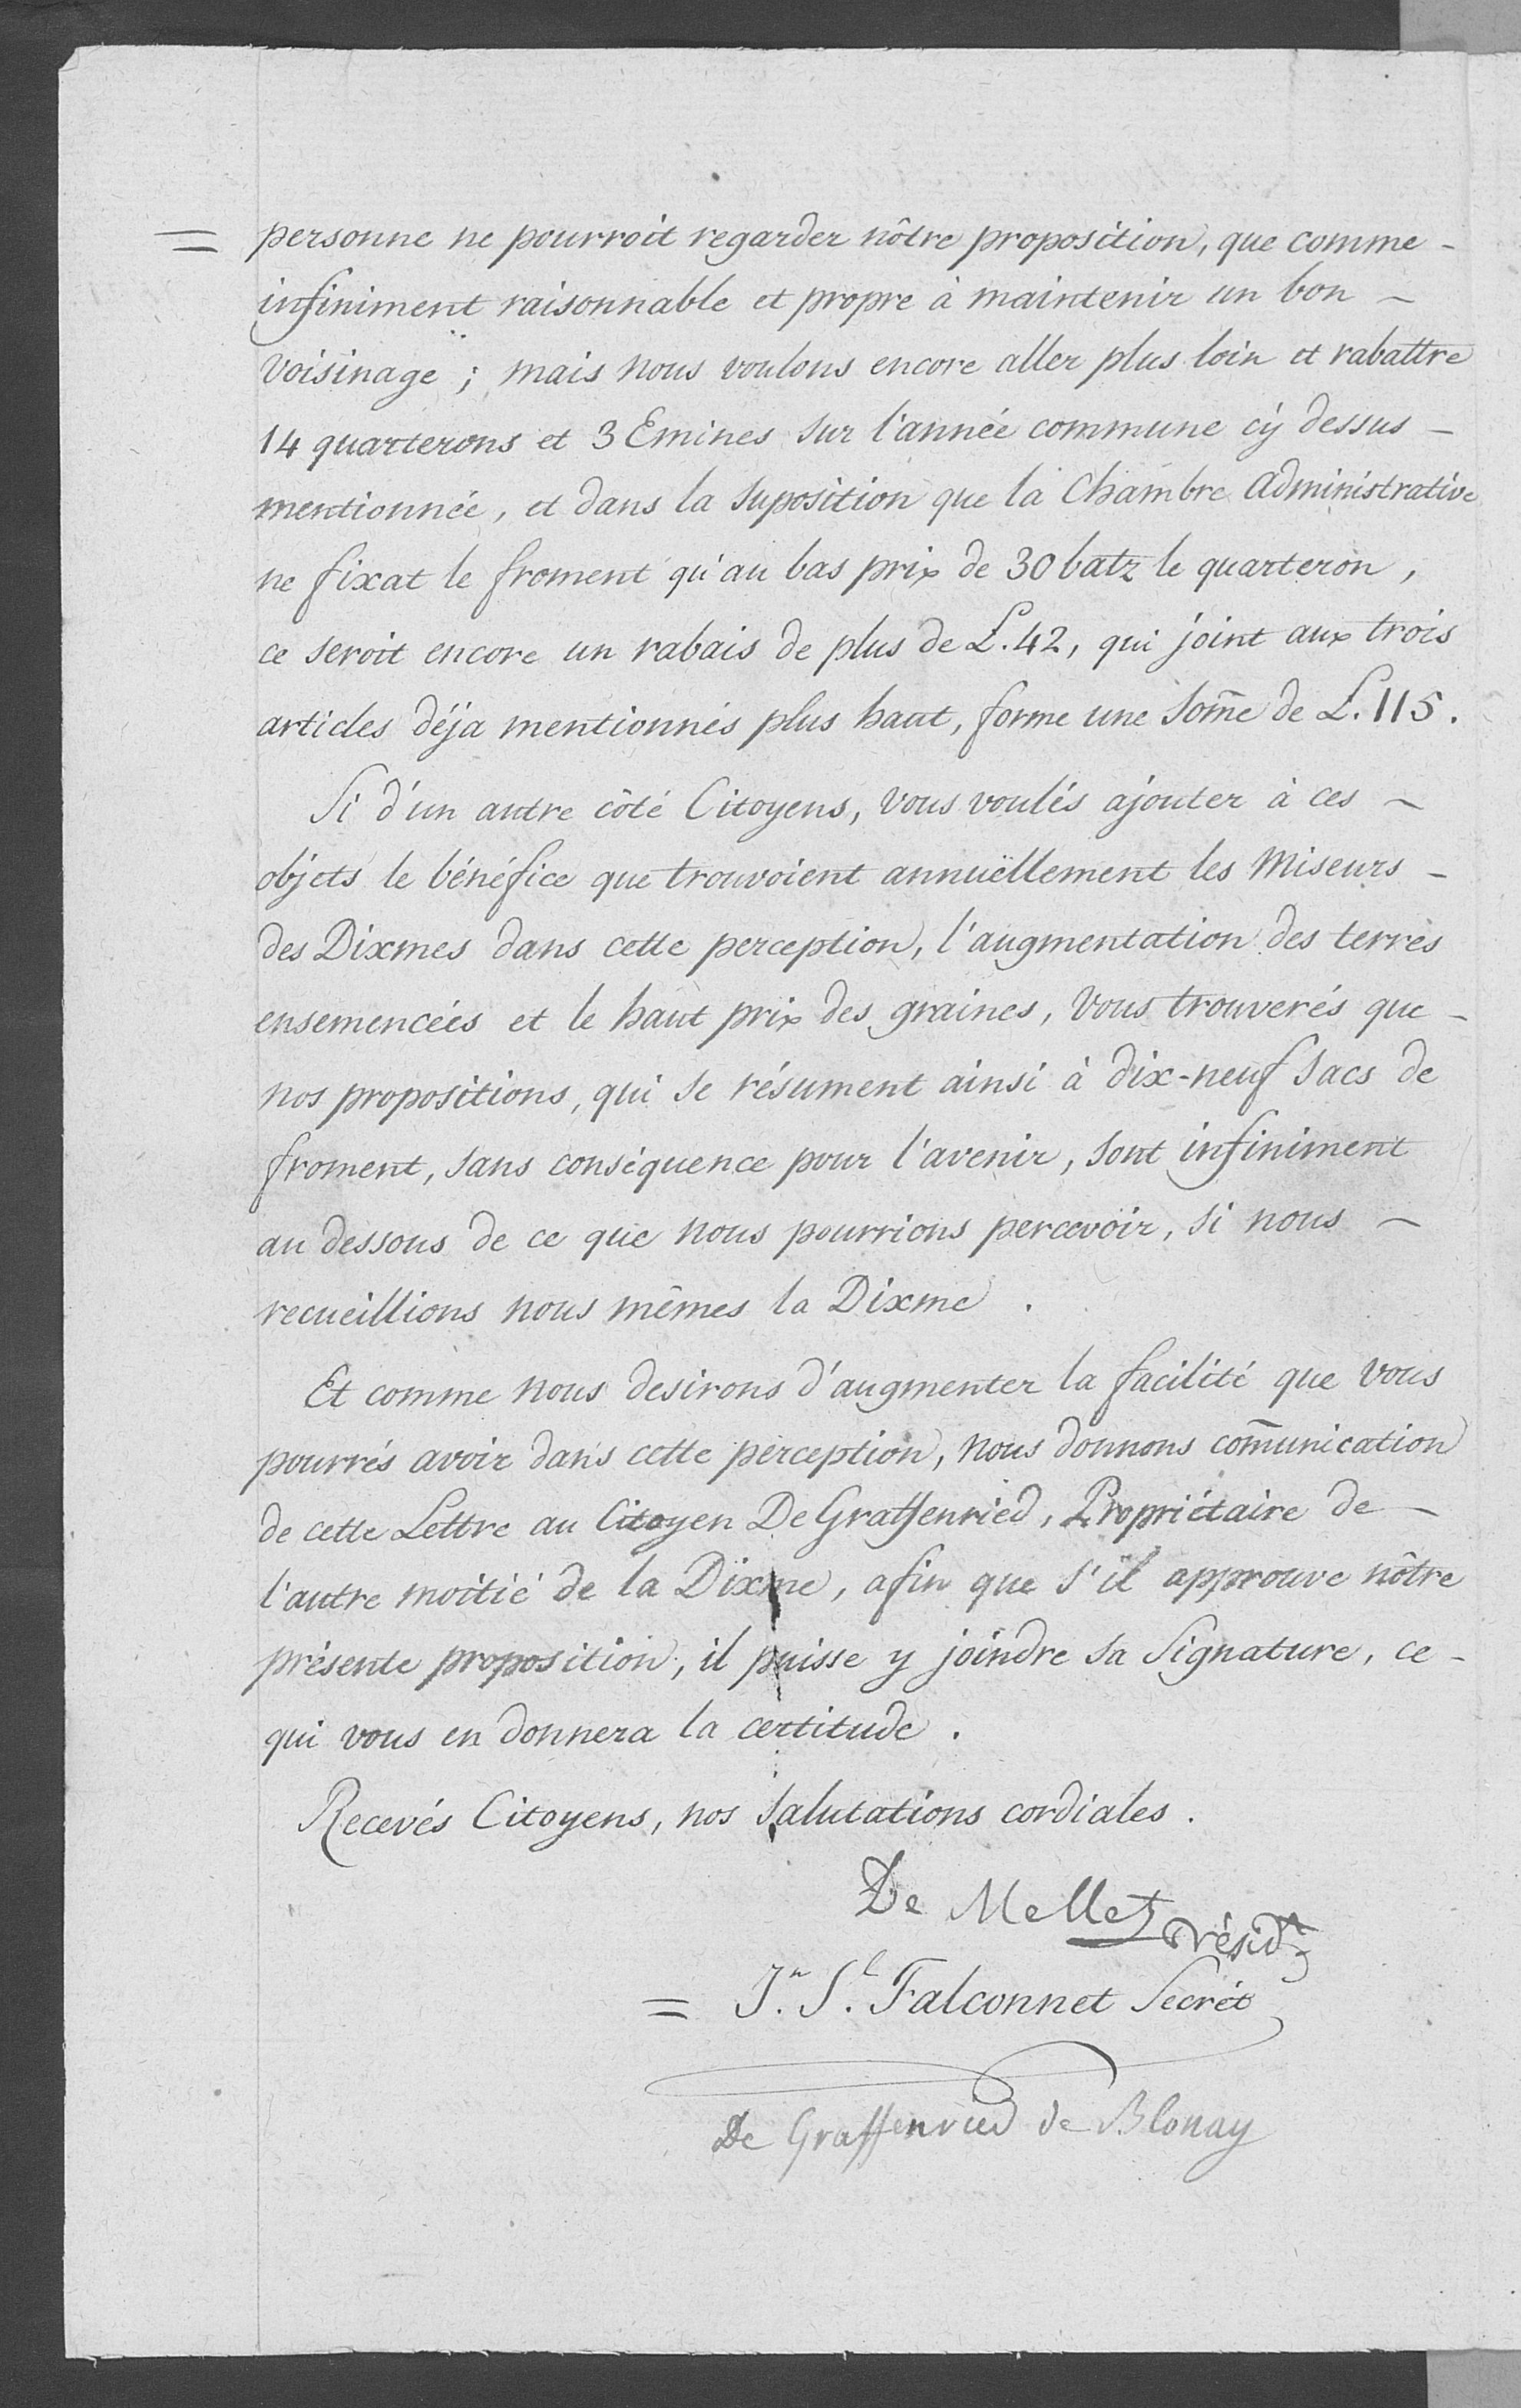 = personne ne pourroit regarder nôtre proposition, que comme -
infiniment raisonnable et propre à maintenir un bon -
voisinage ; mais nous voulons encore aller plus loin et rabattre
14 quarterons et 3 Emines sur l'année commune cÿ dessus -
mentionnée, et dans la suposition que la Chambre Administrative
ne fixat le froment qu'au bas prix de 30 batz le quarteron,
ce seroit encore un rabais de plus de L. 42, qui joint aux trois
articles déja mentionnés plus haut, forme une som̄e de L. 115.
Si d'un autre côté Citoyens, vous voulés ajouter à ces -
objets le bénéfice que trouvoient annuëllement les Miseurs -
des Dixmes dans cette perception, l'augmentation des terres
ensemencées et le haut prix des graines, vous trouverés que -
nos propositions, qui se résument ainsi à dix-neuf sacs de
froment, sans conséquence pour l'avenir, sont infiniment
au dessous de ce que nous pourrions percevoir, si nous -
recueillions nous mêmes la Dixme .
Et comme nous desirons d'augmenter la facilité que vous
pourrés avoir dans cette perception, nous donnons com̄unication
de cette Lettre au Citoyen De Graffenried, Propriétaire de -
l'autre moitié de la Dixme, afin que s'il approuve nôtre
présente proposition, il puisse y joindre sa Signature, ce -
qui vous en donnera la certitude .
Recevés Citoyens, nos salutations cordiales .
De Mellet Présidt
= Jn. Sl. Falconnet Secrét
De Graffenried de Blonay